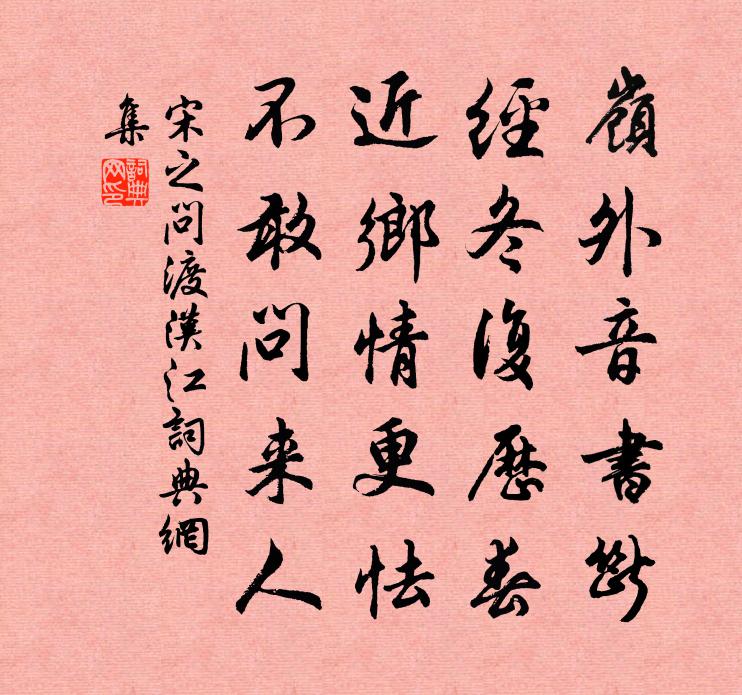 嶺外音書斷
經冬復歷春
近鄉情更怯
不敢問来人
宋之问渡漢江詞典網
集
詞典網印